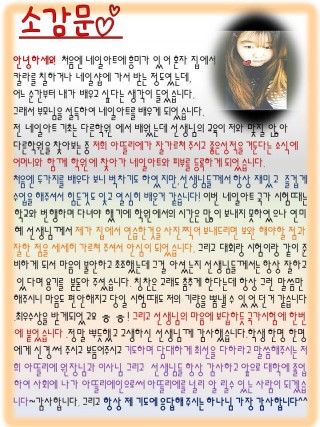 소감문
안녕하세요 처음에 네일아트에 흥미가 있어 혼자 집에서
칼라를 칠하거나 네일샵에 가서 받는 정도였는데,
어느 순간부터 내가 배우고 싶다는 생각이 들었습니다.
그래서 부모님을 설득하여 네일아트를 배우게 되었습니다.
전 네일아트 기초는 다른학원 에서 배웠는데 선생님의 교육이 저와 맞질 않아
다른학원을 찾아보는 중 저희 아뜰리에가 잘가르쳐주시고 좋은성적을 거둔다는 소식에
어머니와 함께 학원에 찾아가 네일아트와 피부를 등록하게 되었습니다.
처음엔 두가지를 배우다 보니 벅차기도 하였지만 선생님들께서 항상 재밌고 즐겁게
수업을 해주셔서 힘든것도 잊고 열심히 배우게 되었습니다! 이번 네일아트 국가 시험때는
학교와 병행하며 다녀야 했기에 학원에서의 시간은 많이 보내지 못하였으나 연미
혜 선생님께서 제가 집에서 연습한거를 사진찍어 보내드리면 보완 해야할 점과
잘한 점을 세세히 가르쳐 주셔서 안심이 되었습니다. 그리고 대회랑 시험이랑 같이 준
비하게 되서 마음이 불안하고 초조했는데 그걸 아셨는지 선생님들께서는 항상 잘하고
있다며 용기를 북돋아 주셨습니다. 칭찬은 고래도 춤추게 한다는데 항상 그런 말씀만
해주시니 마음도 편안해지고 당일 시험때도 저의 기량을 펼칠 수 있었던 거 같습니다
최우수상을 받게되었고요 ㅎㅎ! 그리고 선생님의 마음에 보답하듯 국가시험에 한번
에 붙었습니다. 정말 뿌듯했고 고생하신 선생님께 감사했습니다. 학생 한명 한명
에게 신경써 주시고 보듬어주시고 기도하며 담대하게 최선을 다하라고 말씀해주시는 저
희 아뜰리에 원장님과 이사님 그리고 선생님들 항상 감사하고 앞으로 대학에 졸업
하여 사회에 나가 아뜰리에인으로써 아뜰리에를 널리 알릴수 있는 사람이 되겠습
니다~감사합니다. 그리고 항상 제 기도에 응답해주시는 하나님 가장 감사합니다^^